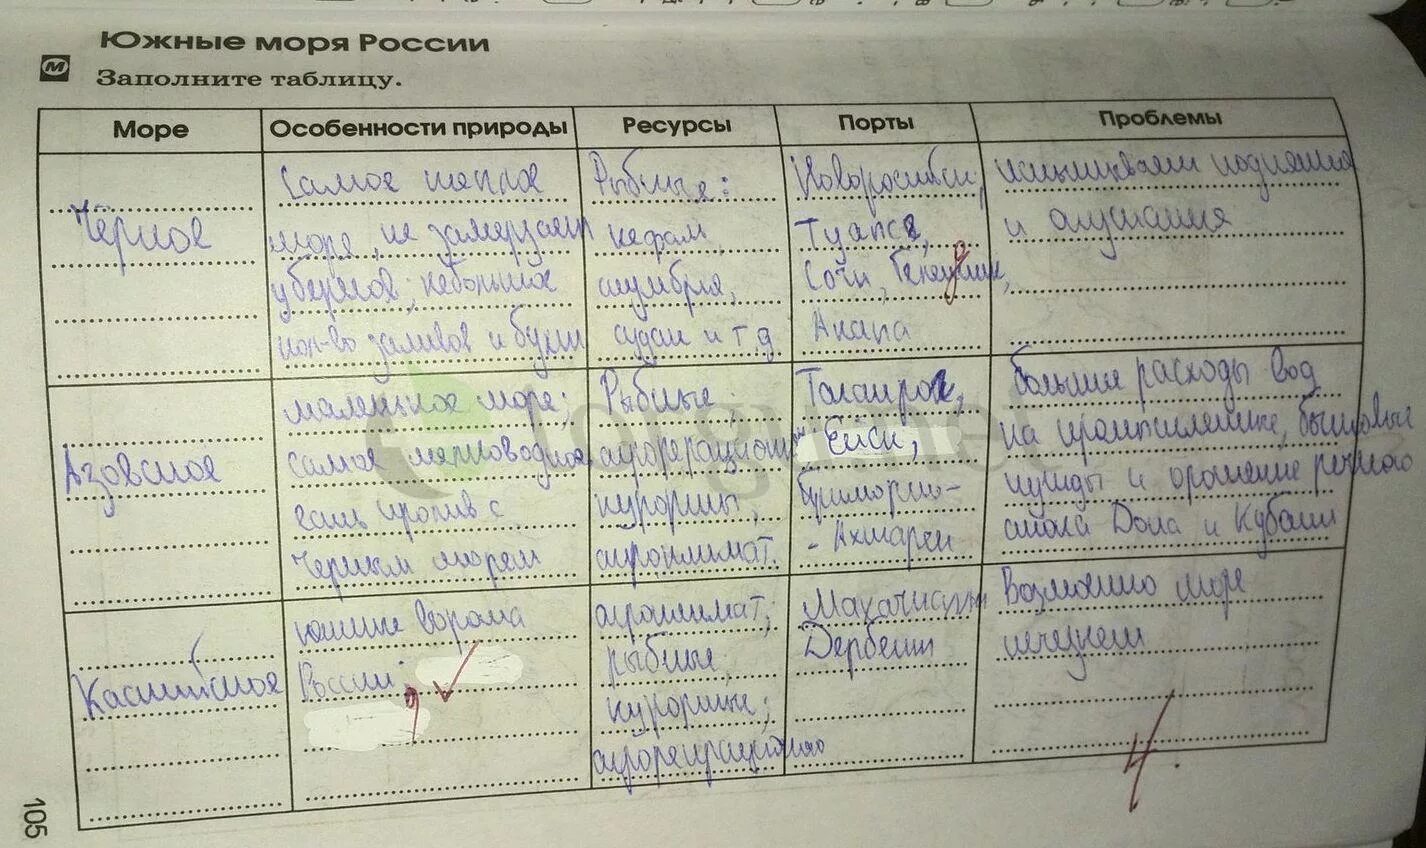 Южные моря России
М
Заполните таблицу.
Море Особенности природы Ресурсы Порты Проблемы
Чёрное
Самое теплое
море, не замерзает
у берегов; небольшое
кол-во заливов и бухт
Рыбные:
кефаль,
скумбрия,
судак и т.д
Новоросийск,
Туапсе,
Сочи,
Анапа
испытывает поднятия
и опускания
Азовское
маленькое море;
самое мелководное
есть пролив с
Черным морем
Рыбные
курорты,
агроклимат.
Таганрог,
Ейск,
Приморско-
-Ахтарск
большие расходы вод
на промышленные, бытовые
нужды и орошение речного
стока Дона и Кубани
Каспийское
южные ворота
России;
агроклимат;
рыбные;
курортные;
Махачкала
Дербент
Возможно море
исчезнет
4
105